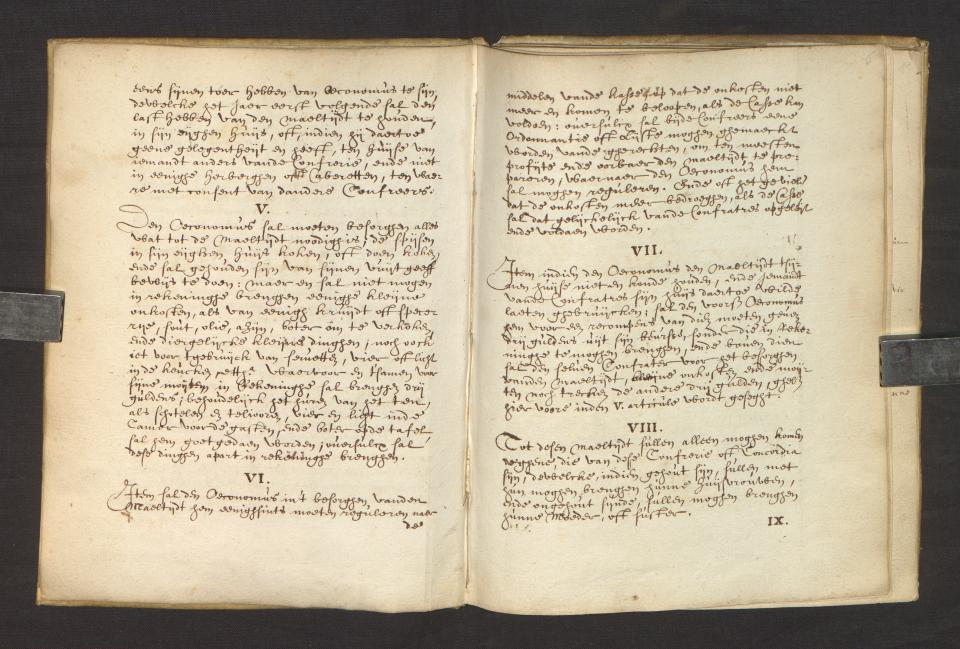 eens sijnen toer hebben van Œconomus te sijn,
dewelcke het Jaer eerst volgende sal den
last hebben van den Maeltijdt te houden,
in sijn eijghen huijs, oft, indien hij daertoe
geene gelegentheijt en heeft, ten huijse van
iemandt anders vande Confrerie, ende niet
in eenighe herberghen oft Cabaretten, ten wae-
re met consent van dandere Confreers.
V.
Den Œconomus sal moeten besorghen alles
wat tot de Maeltijdt nodigh is, de spijsen
in sijn eijghen huijs koken, oft doen koken,
ende sal gehouden sijn van sijnen uuijtgeeff
bewijs te doen: maer en sal niet mogen
in rekeninghe brenghen eenighe kleijne
onkosten, als van eenigh kruijdt oft specer-
rije, sout, olie, azijn, boter om te verkoken,
ende diergelijcke kleijne dinghen, noch oock
iet voor tgebruijck van servetten, vier oft licht
in de keucken etc. Waervoor en tsamen voor
sijne moijten in Rekeninghe sal brenghen drij
guldens; behoudelijck het hueren van het ten,
als schotelen en telioren, vier en licht inde
Camer voor de gasten, ende boter opde tafel
sal hem goetgedaen worden; ouersulcx sal
dese dinghen apart in rekeninghe brenghen.
VI.
Item sal den Œconomus in't besorghen vanden
Maeltijdt hem eenighsints moeten reguleren naer
de
middelen vande kasse, op dat de onkosten niet
meer en komen te beloopen, als de Casse kan
voldoen: ouersulcx sal bijde Confreers eene
Ordonnantie oft Lijste moghen gemaeckt
worden vande gherechten, om ten meesten
profijte ende oorbaer den Maeltijdt te pre-
pareren, waernaer den Œconomus hem
sal moghen reguleren. Ende oft het geviel
dat de onkosten meer bedroeghen, als de Casse
sal dat gelijckelijck vande Confratres opgeleijt
ende voldaen worden.
VII.
Item indien den Œconomus den Maeltijdt tsij-
nen huijse niet en konde houden, ende jemandt
vande Confratres sijn huijs daertoe wilde
laeten gebruijcken: sal den voors. Œconomus
hem voor een recompens van dien moeten geven
drij guldens uijt sijn beurse, sonder die in reke-
ninghe te moghen brenghen, ende boven dien
sal den selven Confrater voor het besorghen
vanden Maeltijdt, kleijne onkosten ende moij-
ten noch trecken de andere drij gulden, ghelijck
hier voore inden V. articule wordt geseght.
VIII.
Tot desen Maeltijdt sullen alleen moghen komen
deghene, die van dese Confrerie oft Concordia
sijn, dewelcke, indien gehout sijn, sullen met
hun moghen brenghen hunne huijsvrouwen,
ende ongehout sijnde, sullen moghen brenghen
hunne Moeder, oft suster.
IX.